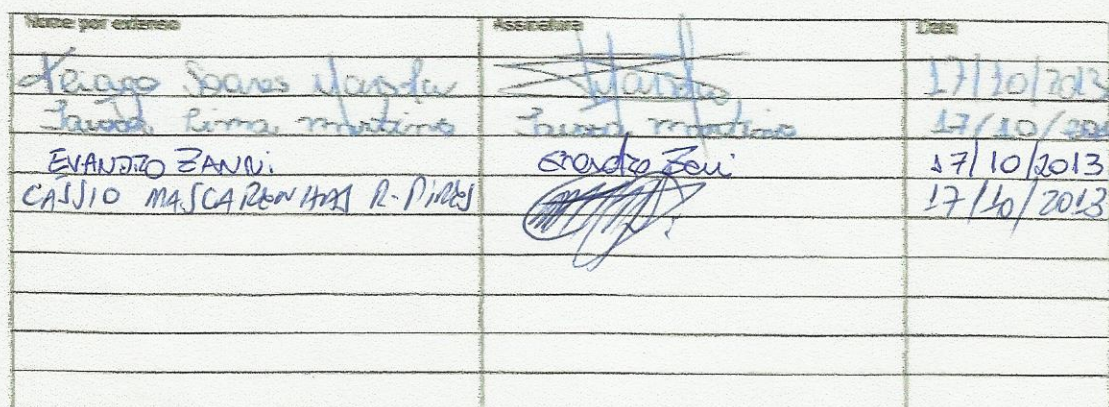 Nome por extenso Assinatura Data
Thiago Soares 17/10/2013
Lima Martins Martins 17/10/
EVANDRO ZANNI. Evandro Zani 17/10/2013
CASSIO MASCARENHAS R. PIRES 17/10/2013